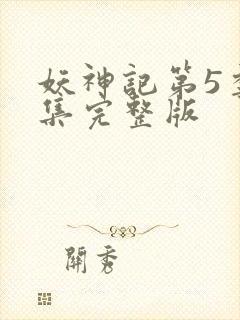 妖神記第5
集完整版
開秀